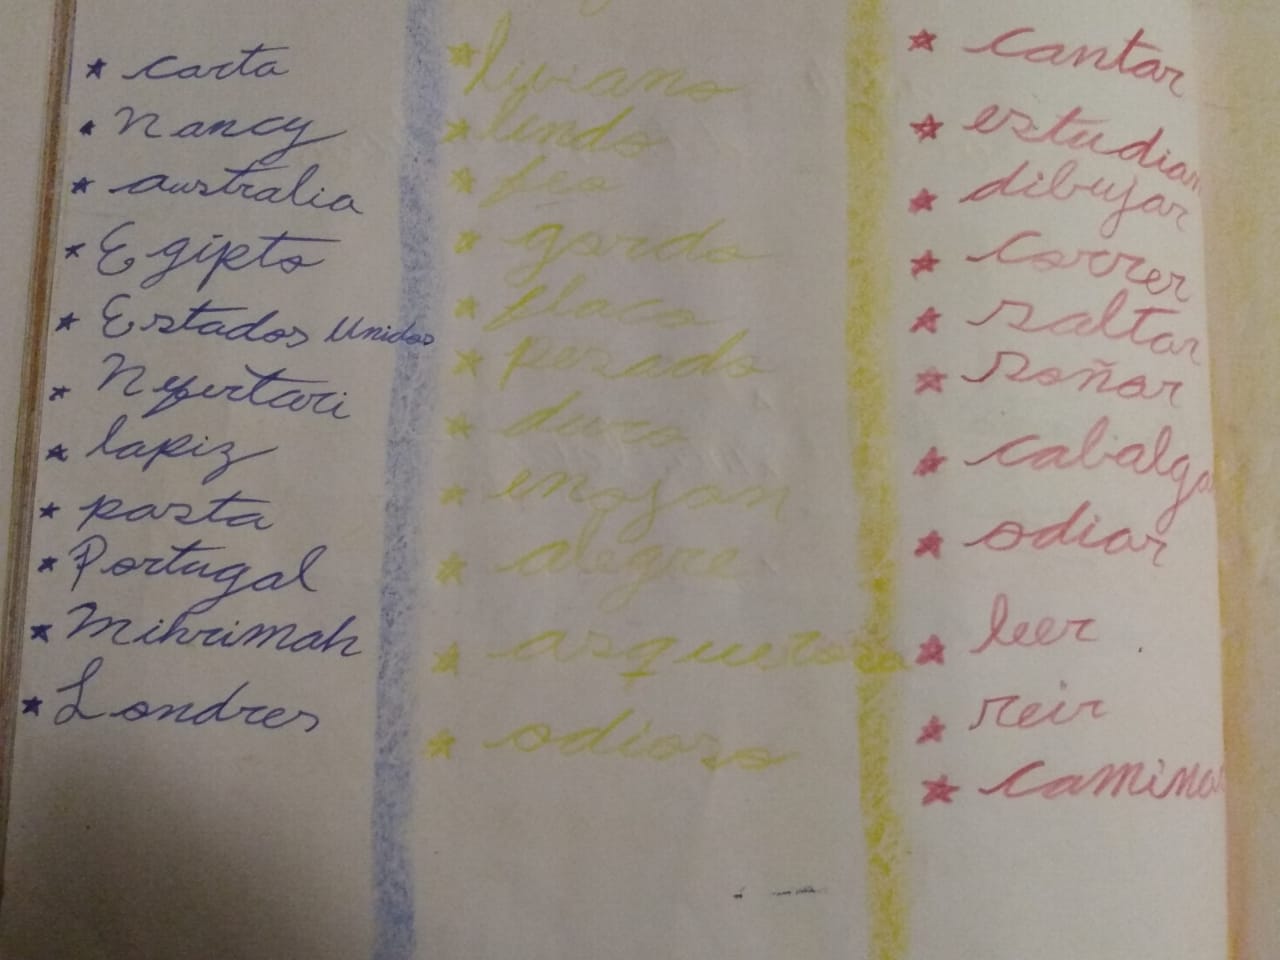 * carta
* Nancy
* australia
* Egipto
* Estados Unidos
* Nefertari
* lapiz
* pasta
* Portugal
* Mihrimah
* Londres
* liviano
* lindo
* feo
* gordo
* flaco
* pesado
* duro
* enojon
* alegre
* asqueroso
* odioso
* cantar
* estudiar
* dibujar
* correr
* saltar
* soñar
* cabalga
* odiar
* leer
* reir
* caminar